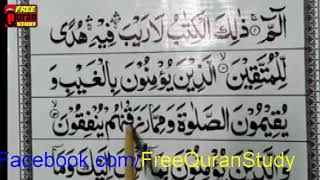 FREE
QURAN
STUDY
الٓمّٓ ۚ ذٰلِكَ الْكِتٰبُ لَا رَيْبَ ۛ فِيْهِ ۛ هُدًى
لِّلْمُتَّقِيْنَ ۙ الَّذِيْنَ يُؤْمِنُوْنَ بِالْغَيْبِ وَ
يُقِيْمُوْنَ الصَّلٰوةَ وَمِمَّا رَزَقْنٰهُمْ يُنْفِقُوْنَ ۙ
الَّذِيْنَ يُؤْمِنُوْنَ بِمَآ اِلَيْكَ وَمَآ
Facebook.com/FreeQuranStudy